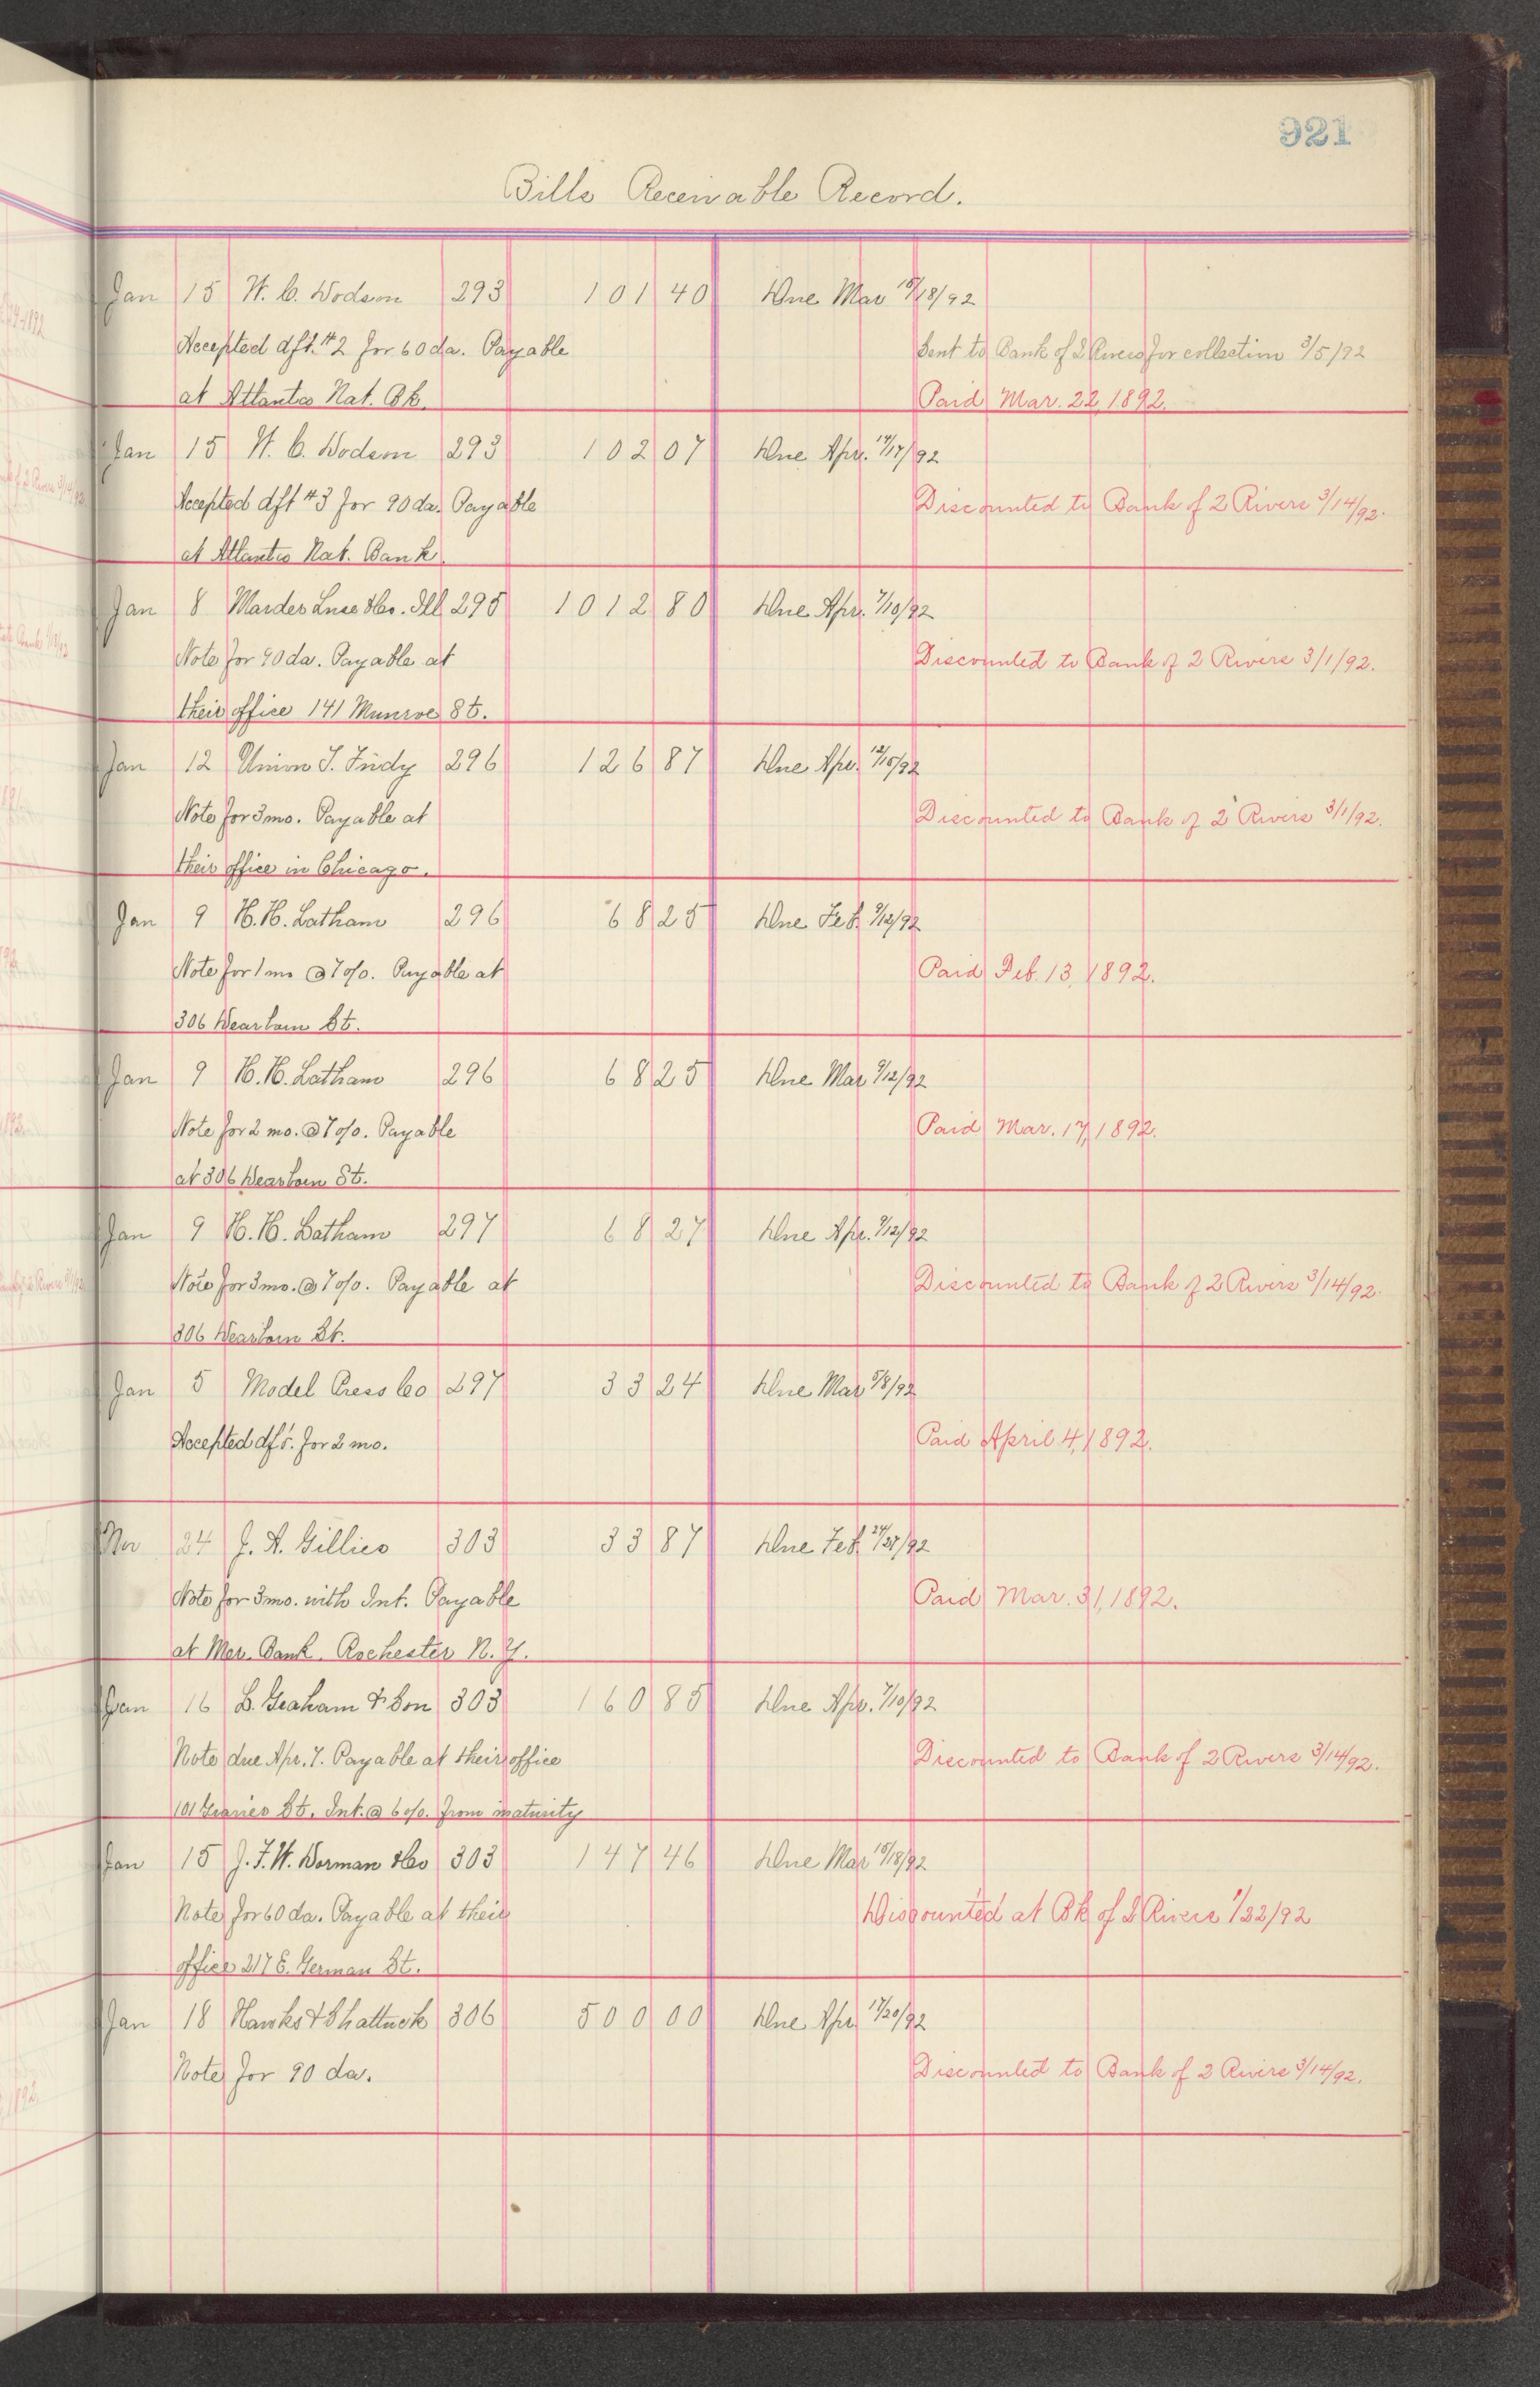 921
Bills Receivable Record.
Jan 15 W. C. Dodson 293 101 40 Due Mar 15/18/92
Accepted dft. #2 for 60 da. Payable Sent to Bank of 2 Rivers for collection 3/5/92
at Atlanta Nat. Bk. Paid Mar. 22, 1892.
Jan 15 W. C. Dodson 293 102 07 Due Apr. 14/17/92
Accepted dft #3 for 90 da. Payable Discounted to Bank of 2 Rivers 3/14/92.
at Atlanta Nat. Bank.
Jan 8 Marder Luse & Co. Ill 295 1012 80 Due Apr. 7/10/92
Note for 90 da. Payable at Discounted to Bank of 2 Rivers 3/1/92.
their office 141 Munroe St.
Jan 12 Union T. Fndy 296 126 87 Due Apr. 12/15/92
Note for 3 mo. Payable at Discounted to Bank of 2 Rivers 3/1/92.
their office in Chicago.
Jan 9 H. H. Latham 296 68 25 Due Feb. 9/12/92
Note for 1 mo @ 7 o/o. Payable at Paid Feb. 13, 1892.
306 Dearborn St.
Jan 9 H. H. Latham 296 68 25 Due Mar 9/12/92
Note for 2 mo. @ 7 o/o. Payable Paid Mar. 17, 1892.
at 306 Dearborn St.
Jan 9 H. H. Latham 297 68 27 Due Apr. 9/12/92
Note for 3 mo. @ 7 o/o. Payable at Discounted to Bank of 2 Rivers 3/14/92.
306 Dearborn St.
Jan 5 Model Press Co 297 33 24 Due Mar 5/8/92
Accepted dft. for 2 mo. Paid April 4, 1892.
Nov 24 J. A. Gillies 303 33 87 Due Feb. 24/27/92
Note for 3 mo. with Int. Payable Paid Mar. 31, 1892.
at Mer. Bank. Rochester N. Y.
Jan 16 L. Graham & Son 303 160 85 Due Apr. 7/10/92
Note due Apr. 7. Payable at their office Discounted to Bank of 2 Rivers 3/14/92.
101 Gravier St. Int. @ 6 o/o. from maturity
Jan 15 J. F. W. Dorman & Co 303 147 46 Due Mar 15/18/92
Note for 60 da. Payable at their Discounted at Bk of 2 Rivers 1/22/92
office 217 E. German St.
Jan 18 Hawks & Shattuck 306 500 00 Due Apr 17/20/92
Note for 90 da. Discounted to Bank of 2 Rivers 3/14/92.